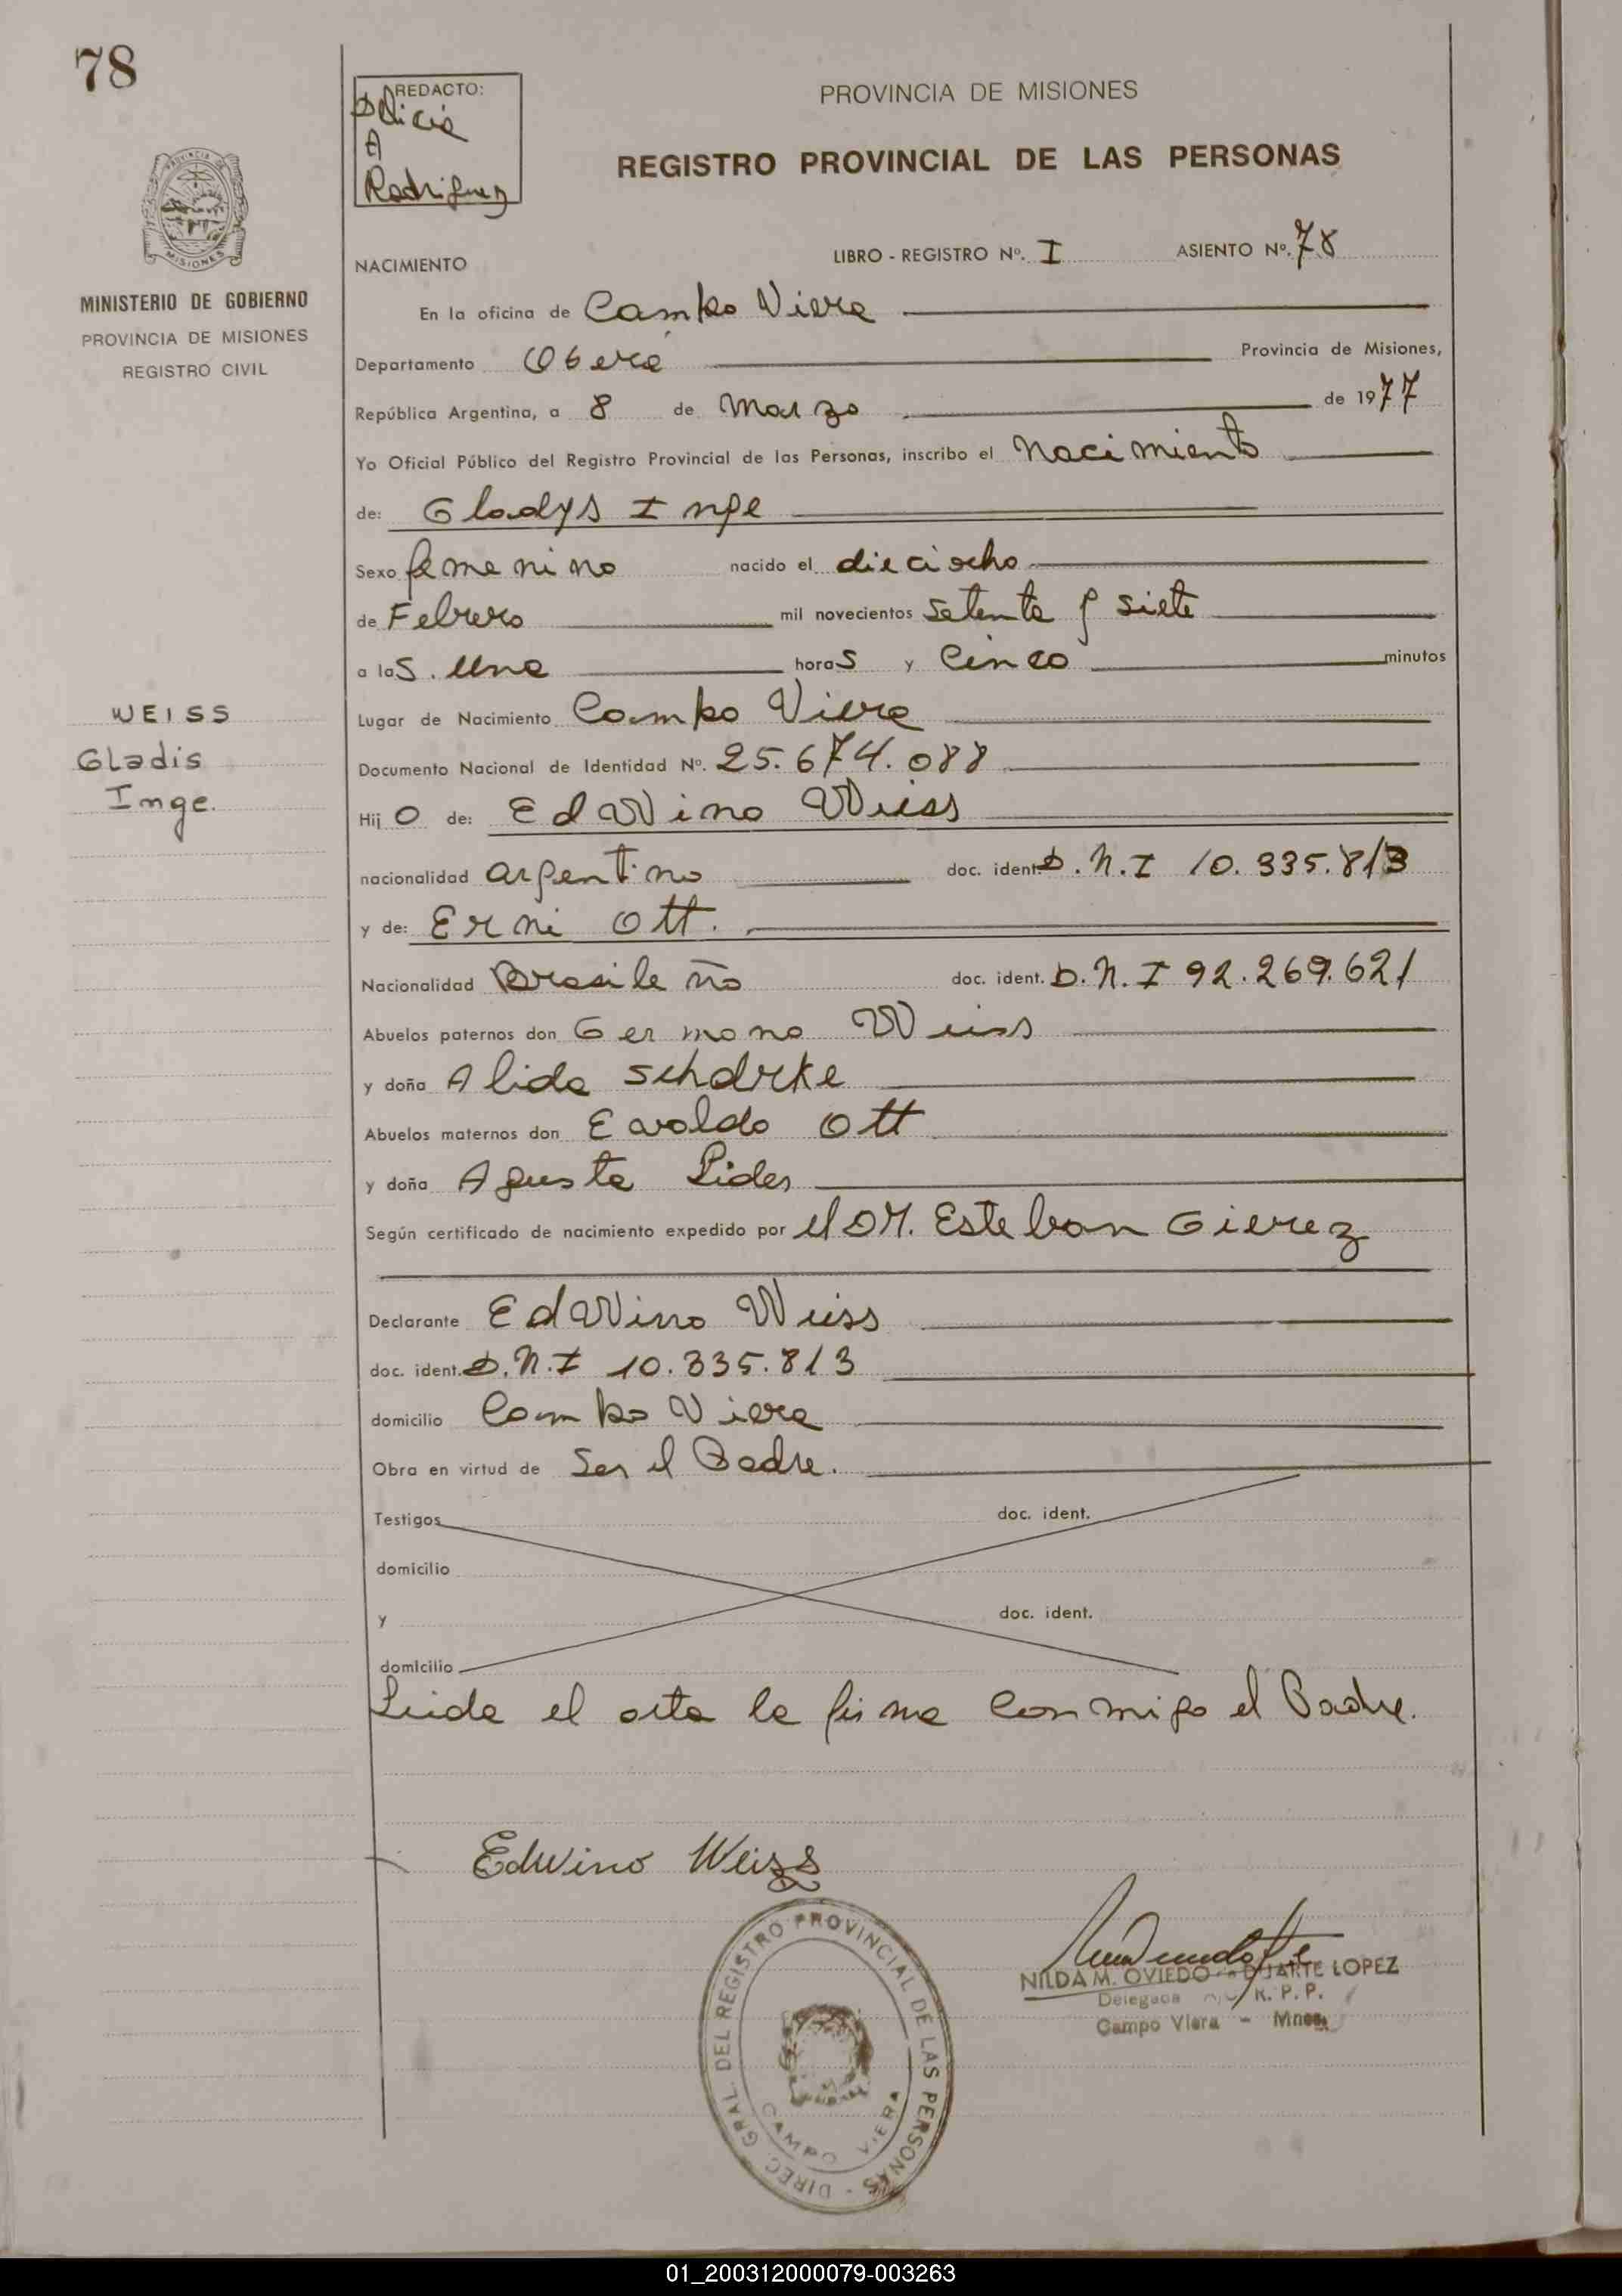 78
REDACTO:
Alicia
A
Rodriguez
PROVINCIA DE MISIONES
REGISTRO PROVINCIAL DE LAS PERSONAS
PROVINCIA DE
MISIONES
MINISTERIO DE GOBIERNO
PROVINCIA DE MISIONES
REGISTRO CIVIL
NACIMIENTO LIBRO - REGISTRO Nº. I ASIENTO Nº. 78
En la oficina de Campo Viera
Departamento Oberá Provincia de Misiones,
República Argentina, a 8 de Marzo de 1977
Yo Oficial Público del Registro Provincial de las Personas, inscribo el Nacimiento
de: Gladys Inge
Sexo femenino nacido el dieciocho
de Febrero mil novecientos setenta y siete
a las una horas y cinco minutos
Lugar de Nacimiento Campo Viera
Documento Nacional de Identidad Nº. 25.674.088
WEISS
Gladis
Inge.
Hijo de: Edwino Weiss
nacionalidad argentino doc. ident. D.N.I 10.335.813
y de: Erni Ott.
Nacionalidad Brasileño doc. ident. D.N.I 92.269.621
Abuelos paternos don Germano Weiss
y doña Alida
Abuelos maternos don Evaldo Ott
y doña Agusta
Según certificado de nacimiento expedido por el DR. Esteban Gierez
Declarante Edwino Weiss
doc. ident. D.N.I 10.335.813
domicilio Campo Viera
Obra en virtud de Ser el Padre.
Testigos doc. ident.
domicilio
y doc. ident.
domicilio
Leida el acta la firma conmigo el Padre.
Edwino Weiss
DIREC. GRAL. DEL REGISTRO PROVINCIAL DE LAS PERSONAS -
CAMPO VIERA
NILDA M. OVIEDO DUARTE LOPEZ
Delegada R. P. P.
Campo Viera - Mnes.
01_200312000079-003263